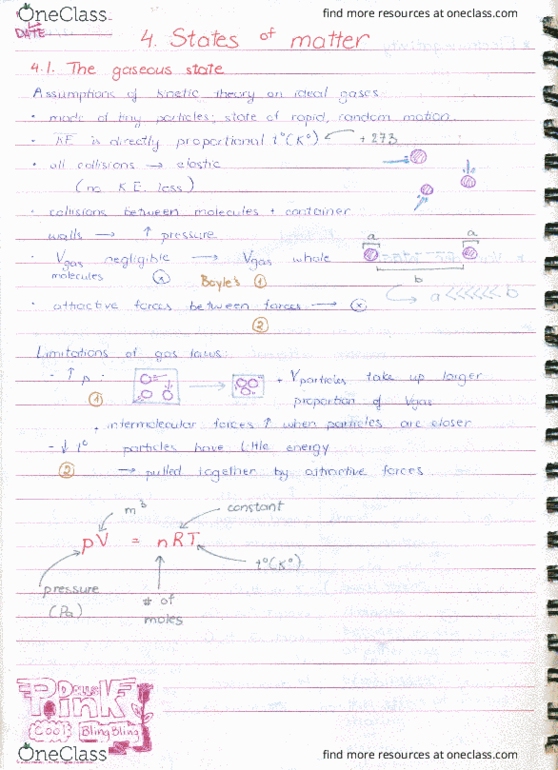 OneClass
find more resources at oneclass.com
DATE
4. States of matter
4.1. The gaseous state
Assumptions of kinetic theory on ideal gases
• made of tiny particles; state of rapid, random motion.
• KE is directly proportional t°(K°) + 273
• all collisions → elastic
(no K.E. loss)
• collisions between molecules + container
walls → ↑ pressure
a a
• Vgas negligible → Vgas whole
molecules Boyle's ①
b
a <<<<<< b
• attractive forces between forces → ⓧ
②
Limitations of gas laws:
- ↑ p • → + Vparticles take up larger
① proportion of Vgas
• intermolecular forces ↑ when particles are closer
- ↓ t° particles have little energy
② → pulled together by attractive forces
m³ constant
pV = nRT
t°(K°)
pressure
(Pa)
# of
moles
Pink
Cool Bling Bling
OneClass
find more resources at oneclass.com